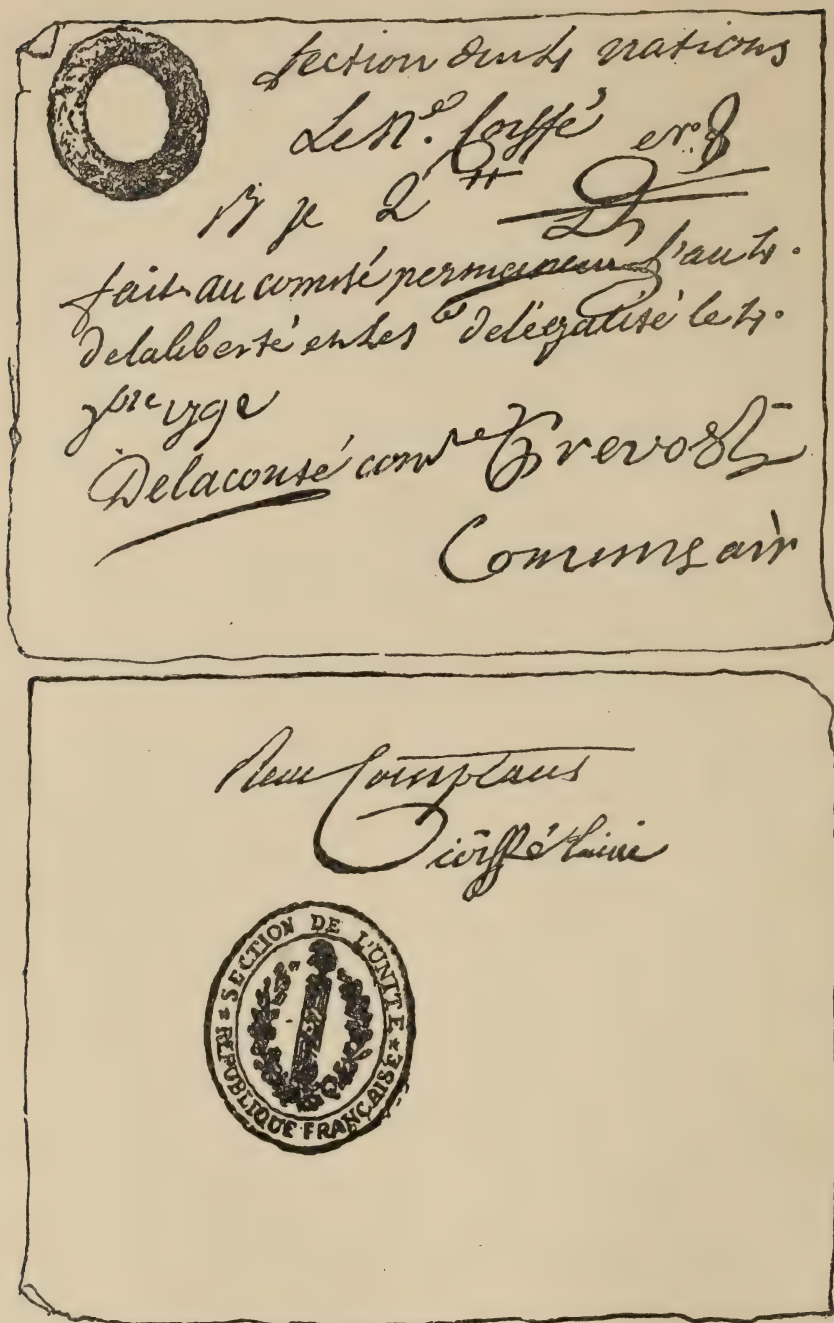 Section des 4 nations
Le Né. Coiffé
2 ₶
fait au comité permanent l'an 4.
de la liberté et les de l'égalité le 4.
7bre 1792
Delaconté comre Prevost
Commisair
Reau Comptant
coiffé
SECTION DE L'UNITÉ
RÉPUBLIQUE FRANÇAISE